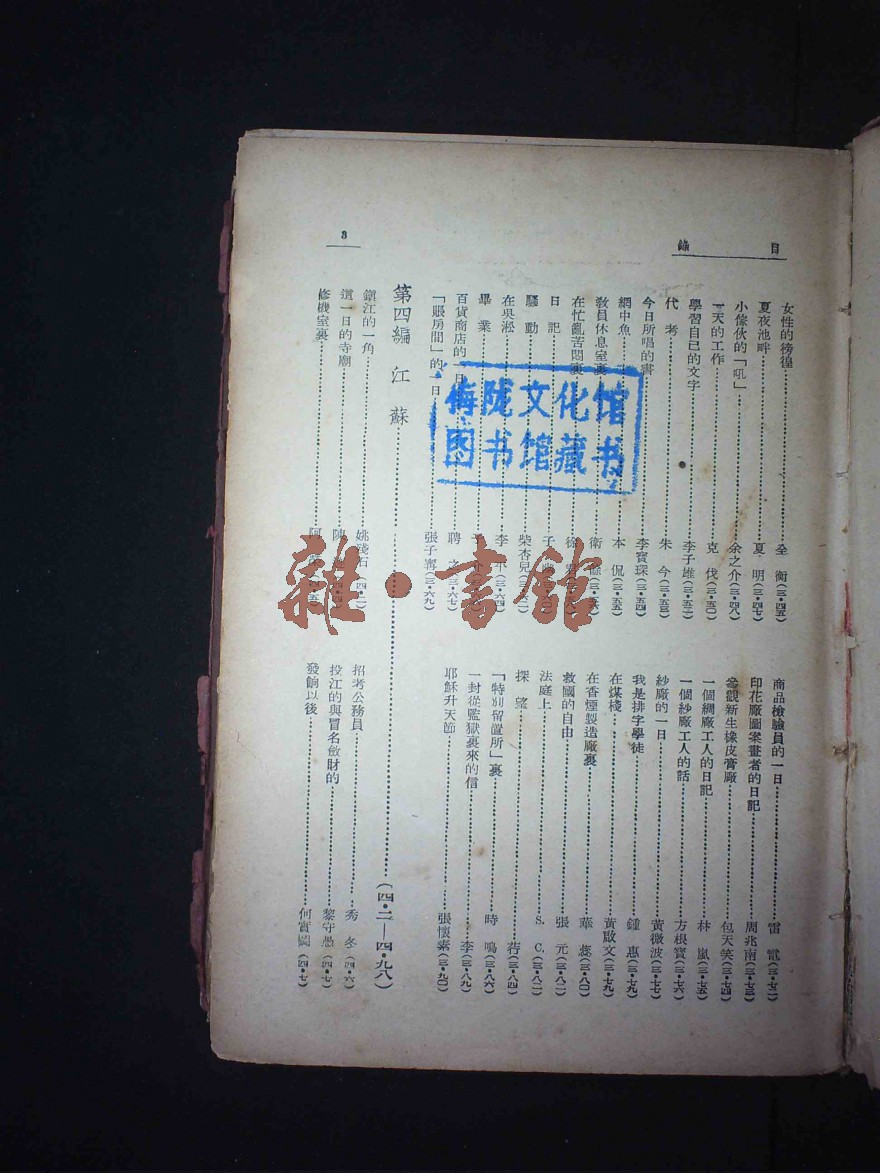 目錄
3
女性的徬徨 全衡(三·四五)
夏夜池畔 夏明(三·四七)
小傢伙的「吼」 余之介(三·四八)
一天的工作 克伐(三·五〇)
學習自己的文字 李子雄(三·五二)
代考 朱今(三·五三)
今日所唱的書 李寶琛(三·五四)
網中魚 本侃(三·五五)
教員休息室裏 衛
在忙亂苦悶裏 徐
日記 子
騷動 柴杏兒
在吳淞 李
畢業
百貨商店的一日 聘之(三·六七)
「賬房間」的一日 張子寯(三·六九)
商品檢驗員的一日 雷電(三·七二)
印花廠圖案畫者的日記 周兆南(三·七三)
參觀新生橡皮膏廠 包天笑(三·七四)
一個綢廠工人的日記 林嵐(三·七五)
一個紗廠工人的話 方根寶(三·七六)
紗廠的一日 黃微波(三·七七)
我是排字學徒 鍾惠(三·七九)
在煤棧 黃啟文(三·七九)
在香煙製造廠裏 華蕊(三·八〇)
救國的自由 張元(三·八二)
法庭上 S. C.(三·八二)
探望 若(三·八四)
「特別留置所」裏 時鳴(三·八六)
一封從監獄裏來的信 李(三·八九)
耶穌升天節 張懷素(三·九〇)
第四編 江蘇 (四·二—四·九八)
鎮江的一角 姚殘石(四·二)
這一日的寺廟 陳
修機室裏 阿
招考公務員 秀冬(四·六)
投江的與冒名斂財的 黎守愚(四·七)
發餉以後 何實(四·七)
梅陇文化馆
图书馆藏书
雜·書館